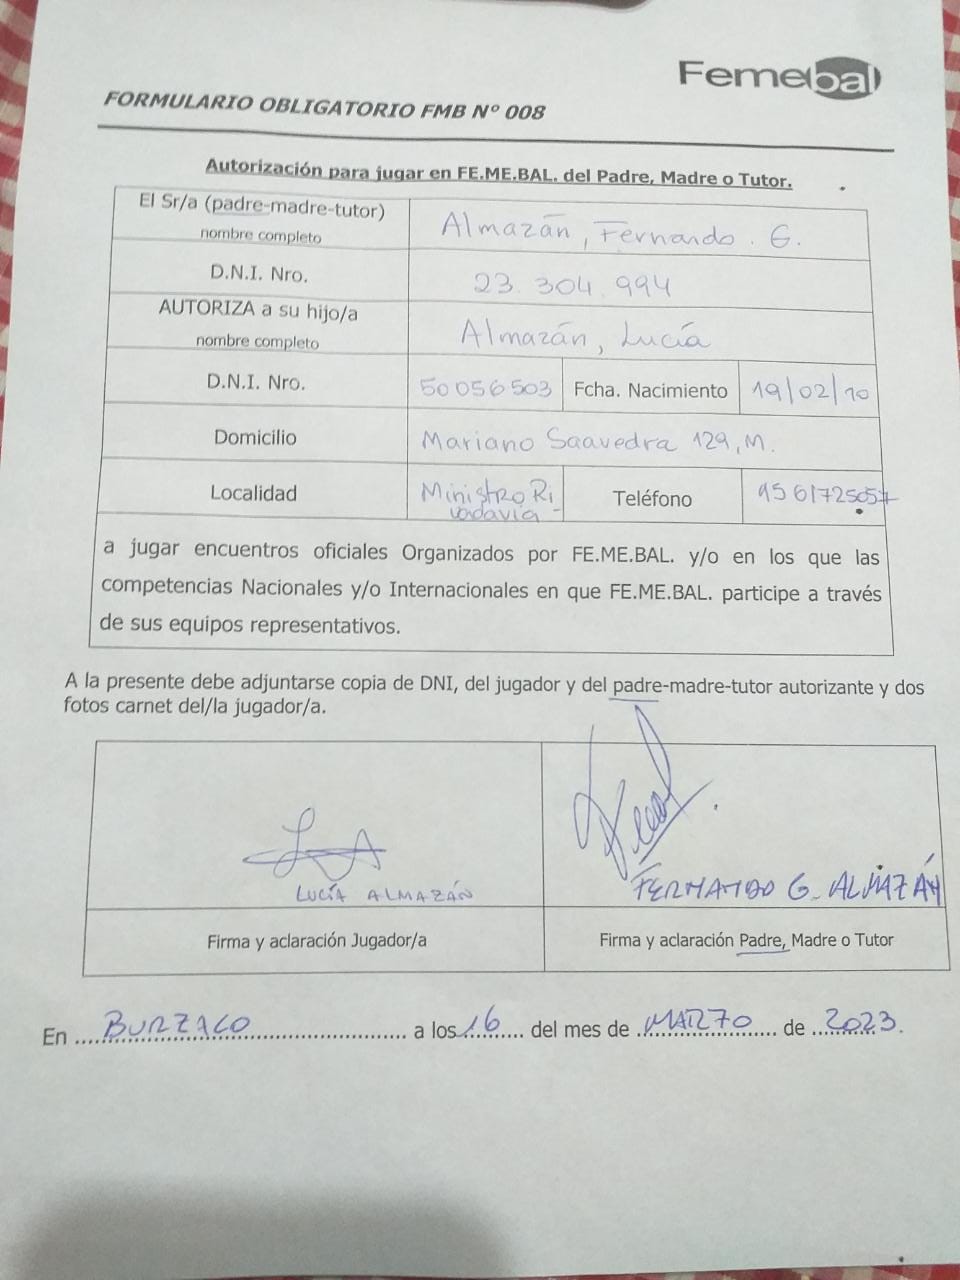 Femebal
FORMULARIO OBLIGATORIO FMB Nº 008
Autorización para jugar en FE.ME.BAL. del Padre, Madre o Tutor.
El Sr/a (padre-madre-tutor)
nombre completo
Almazán, Fernando. G.
D.N.I. Nro.
23.304.994
AUTORIZA a su hijo/a
nombre completo
Almazán, Lucía
D.N.I. Nro.
50056503
Fcha. Nacimiento
19/02/10
Domicilio
Mariano Saavedra 129, M.
Localidad
Ministro Ri
vadavia -
Teléfono
1561725057
a jugar encuentros oficiales Organizados por FE.ME.BAL. y/o en los que las
competencias Nacionales y/o Internacionales en que FE.ME.BAL. participe a través
de sus equipos representativos.
A la presente debe adjuntarse copia de DNI, del jugador y del padre-madre-tutor autorizante y dos
fotos carnet del/la jugador/a.
LUCÍA ALMAZÁN
FERNANDO G. ALMAZÁN
Firma y aclaración Jugador/a
Firma y aclaración Padre, Madre o Tutor
En BURZACO a los 16 del mes de MARZO de 2023.